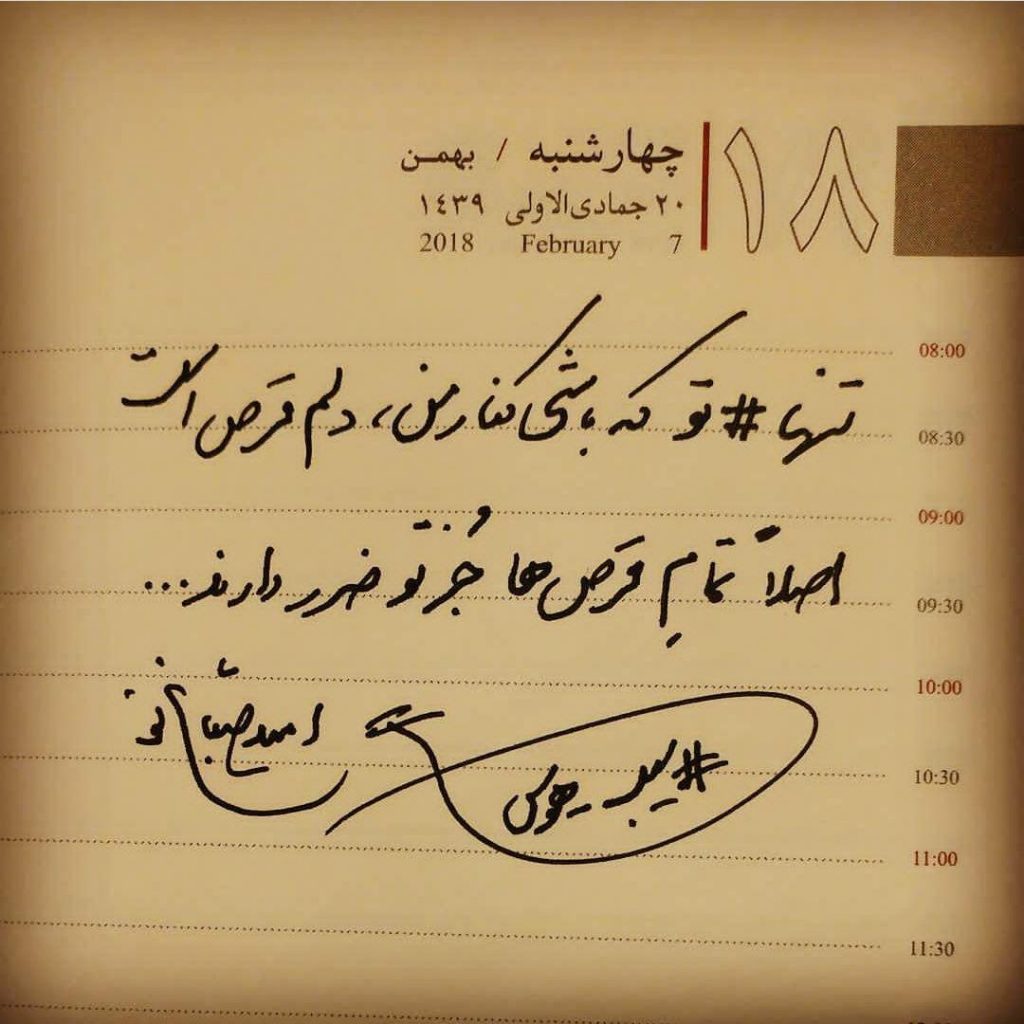 ۱۸
چهارشنبه / بهمن
۲۰ جمادی‌الاولی ۱۴۳۹
7 February 2018
08:00
تنها #تو که باشی کنار من، دلم قُرص است
08:30
09:00
اصلاً تمامِ قُرص‌ها جُز تو ضرر دارند...
09:30
10:00
امید صباغ نو
#سید_هوس
10:30
11:00
11:30